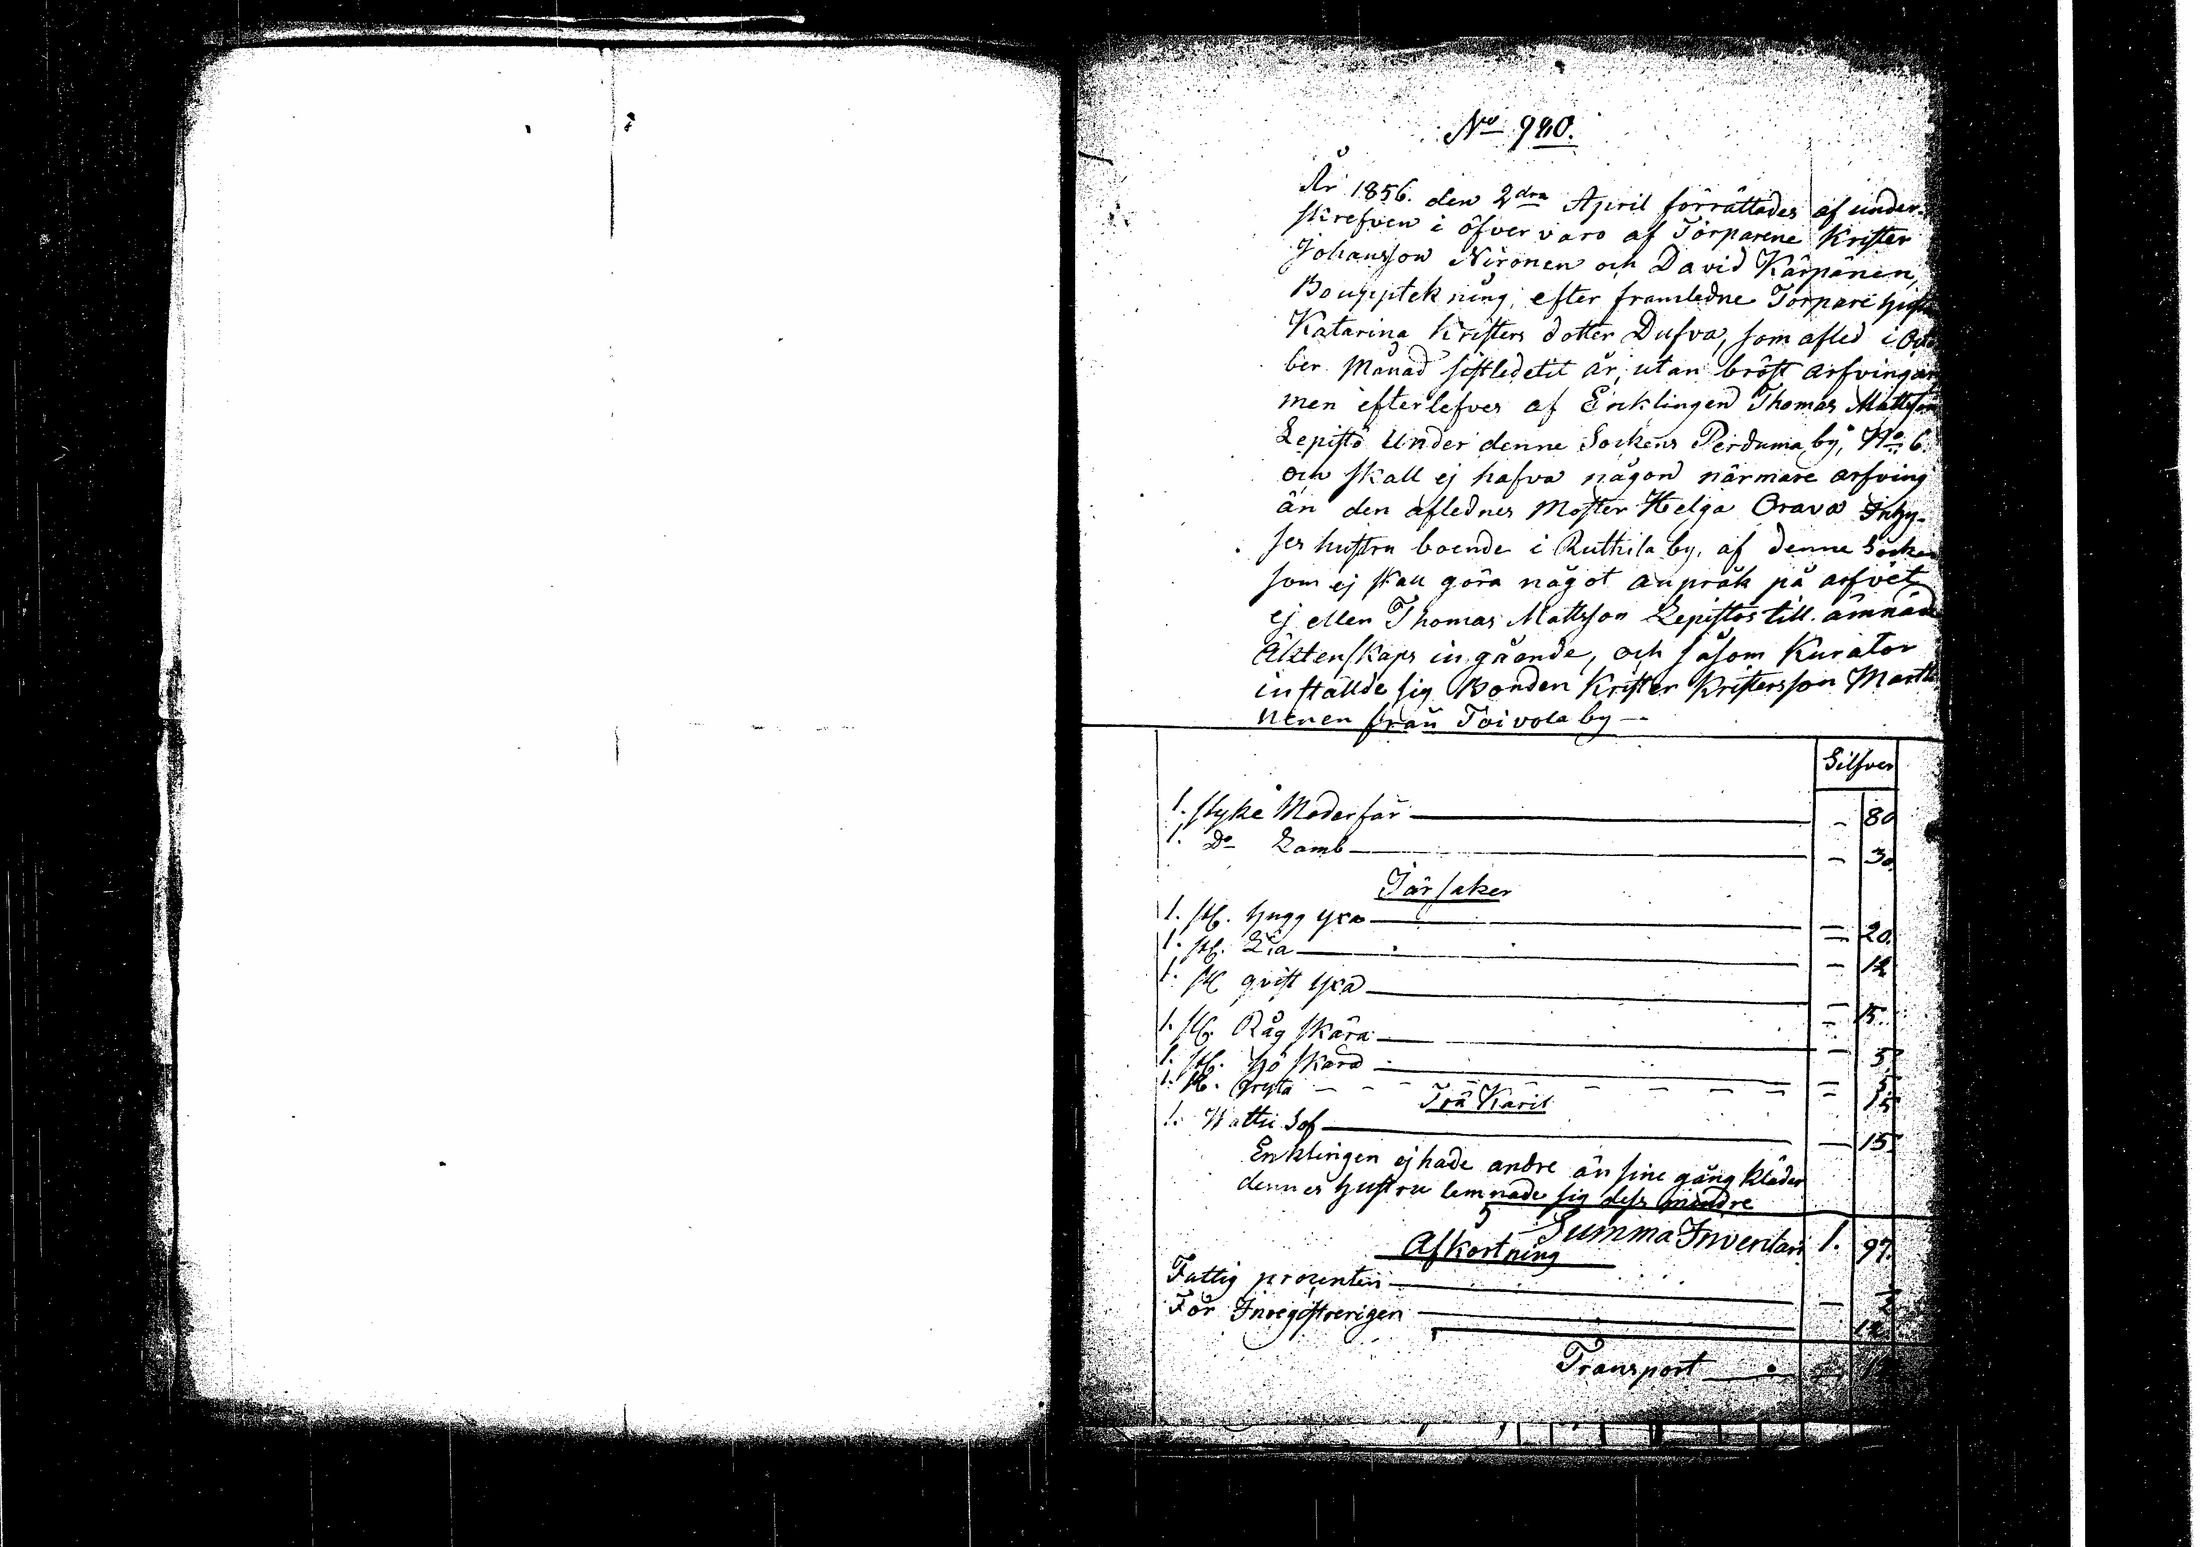 No 980.
År 1856. den 2dra April förrättades af under-
skrefven i öfvervaro af Torparene Krister
Johansson Nironen och David Kärpänen,
Boupptekning, efter framledne Torpare hust
Katarina Kristers dotter Dufva, som afled i Octo
ber Månad sistledetit år, utan bröst arfvingar
men efterlefves af Enklingen Thomas Mattsson
Lepistö Under denne Sockens Perduma by, No 6.
och skall ej hafva någon närmare arfving
än den aflednes Moster Helga Orava Inhy-
ses hustru boende i Ruthila by. af denne Socken
som ej skall göra något anpråk på arfvet
ej eller Thomas Mattsson Lepistös till ämnade
Äktenskaps ingående, och såsom Kurator
inställde sig Bonden Krister Kristersson Martti
nenen från Toivola by —
Silfver
1. styke Moderfår — 80
1. Do Lamb — 30.
Järsaker
1. st. hugg yxa — 20.
1. st. Lia — 12
1. st qvist yxa — 15.
1. st. Råg skära — 5.
1. st. hö skära — 5
1. st. Gryta — 15
Trä Käril
1. Watte Sof — 15.
Enklingen ej hade andre än sine gång kläder
dennes hustru lemnade sig dess mindre
Summa Inventari 1. 97.
Afkortning
Fattig prozenten — 2
För Inregistrerigen 12
Transport